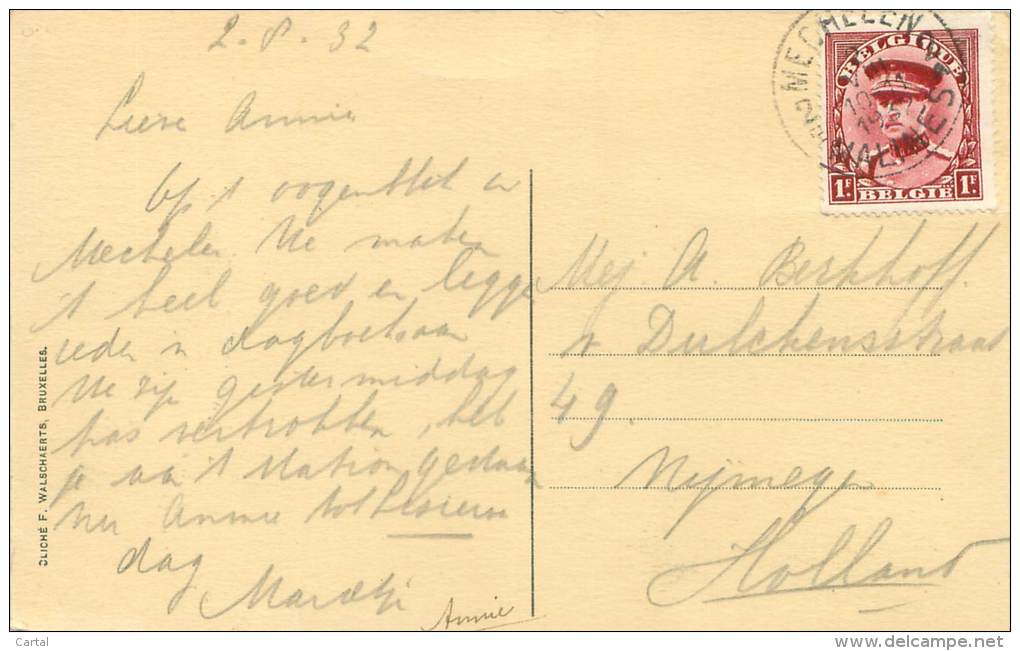 2-8-32
Lieve Annie
Op 't oogenblik in
Mechelen We maken
't heel goed en leggen
ieder n dagboek aan
We zijn gister middag
pas vertrokken, heb
je aan 't station gestaan
Annie tot
dag
Annie
Mej. A. Berkhoff.
Dulckensstraat
49.
Nijmegen
Holland
MECHELEN
MALINES
BELGIQUE
1F. BELGIË 1F.
CLICHÉ F. WALSCHAERTS, BRUXELLES.
Cartal
delcampe.net